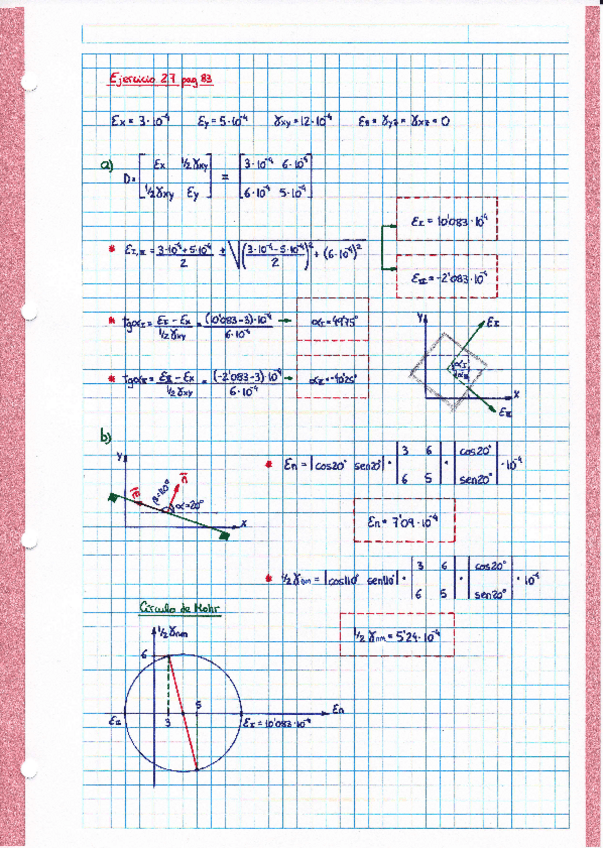 Ejercicio 27 pag 83
εx = 3·10⁻⁴ εy = 5·10⁻⁴ γxy = 12·10⁻⁴ εz = γyz = γxz = 0
a) D = [εx ½γxy; ½γxy εy] = [3·10⁻⁴ 6·10⁻⁴; 6·10⁻⁴ 5·10⁻⁴]
* εI,II = (3·10⁻⁴ + 5·10⁻⁴)/2 ± √(((3·10⁻⁴ - 5·10⁻⁴)/2)² + (6·10⁻⁴)²)
εI = 10'083·10⁻⁴
εII = -2'083·10⁻⁴
* tgαI = (εI - εx)/(1/2 γxy) = (10'083-3)·10⁻⁴/(6·10⁻⁴) → αI = 49'75°
* tgαII = (εII - εx)/(1/2 γxy) = (-2'083-3)·10⁻⁴/(6·10⁻⁴) → αII = -40'25°
Y
εI
αI
αII
X
εII
b)
Y
m
β=110°
n
α=20°
X
* εn = |cos20° sen20°| · |3 6; 6 5| · |cos20°; sen20°| · 10⁻⁴
εn = 7'09·10⁻⁴
* ½γnm = |cos110° sen110°| · |3 6; 6 5| · |cos20°; sen20°| · 10⁻⁴
½γnm = 5'24·10⁻⁴
Círculo de Mohr
½γnm
6
5
εn
εII
3
εI = 10'083·10⁻⁴